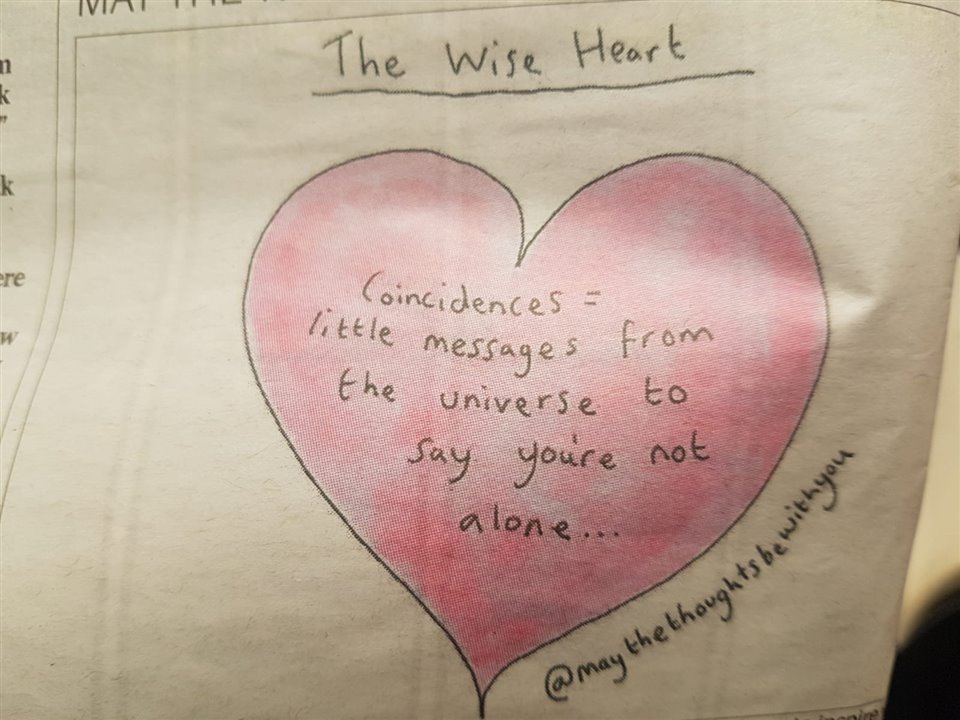 MAY THE
The Wise Heart
Coincidences =
little messages from
the universe to
say you're not
alone...
@maythethoughtsbewithyou
m
k
"
k
ere
w